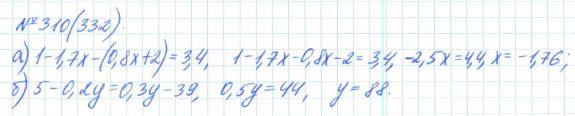 № 310(332).
а) 1-1,7x-(0,8x+2)=3,4, 1-1,7x-0,8x-2=3,4, -2,5x=4,4, x=-1,76;
б) 5-0,2y=0,3y-39, 0,5y=44, y=88.